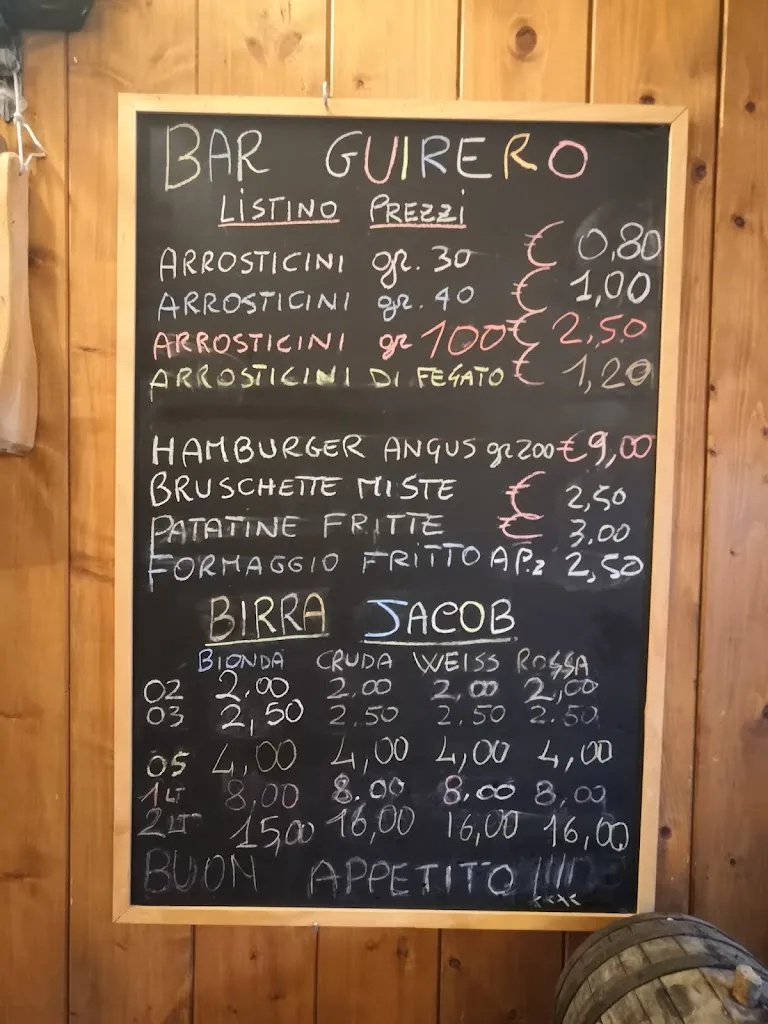 BAR GUIRERO
LISTINO PREZZI
ARROSTICINI gr. 30 € 0,80
ARROSTICINI gr. 40 € 1,00
ARROSTICINI gr 100 € 2,50
ARROSTICINI DI FEGATO € 1,20
HAMBURGER ANGUS gr 200 € 9,00
BRUSCHETTE MISTE € 2,50
PATATINE FRITTE € 3,00
FORMAGGIO FRITTO A P.z 2,50
BIRRA JACOB
BIONDA CRUDA WEISS ROSSA
02 2,00 2.00 2,00 2,00
03 2,50 2.50 2.50 2.50
05 4,00 4,00 4,00 4,00
1LT 8,00 8.00 8.00 8.00
2LT 15,00 16,00 16,00 16,00
BUON APPETITO !!!!